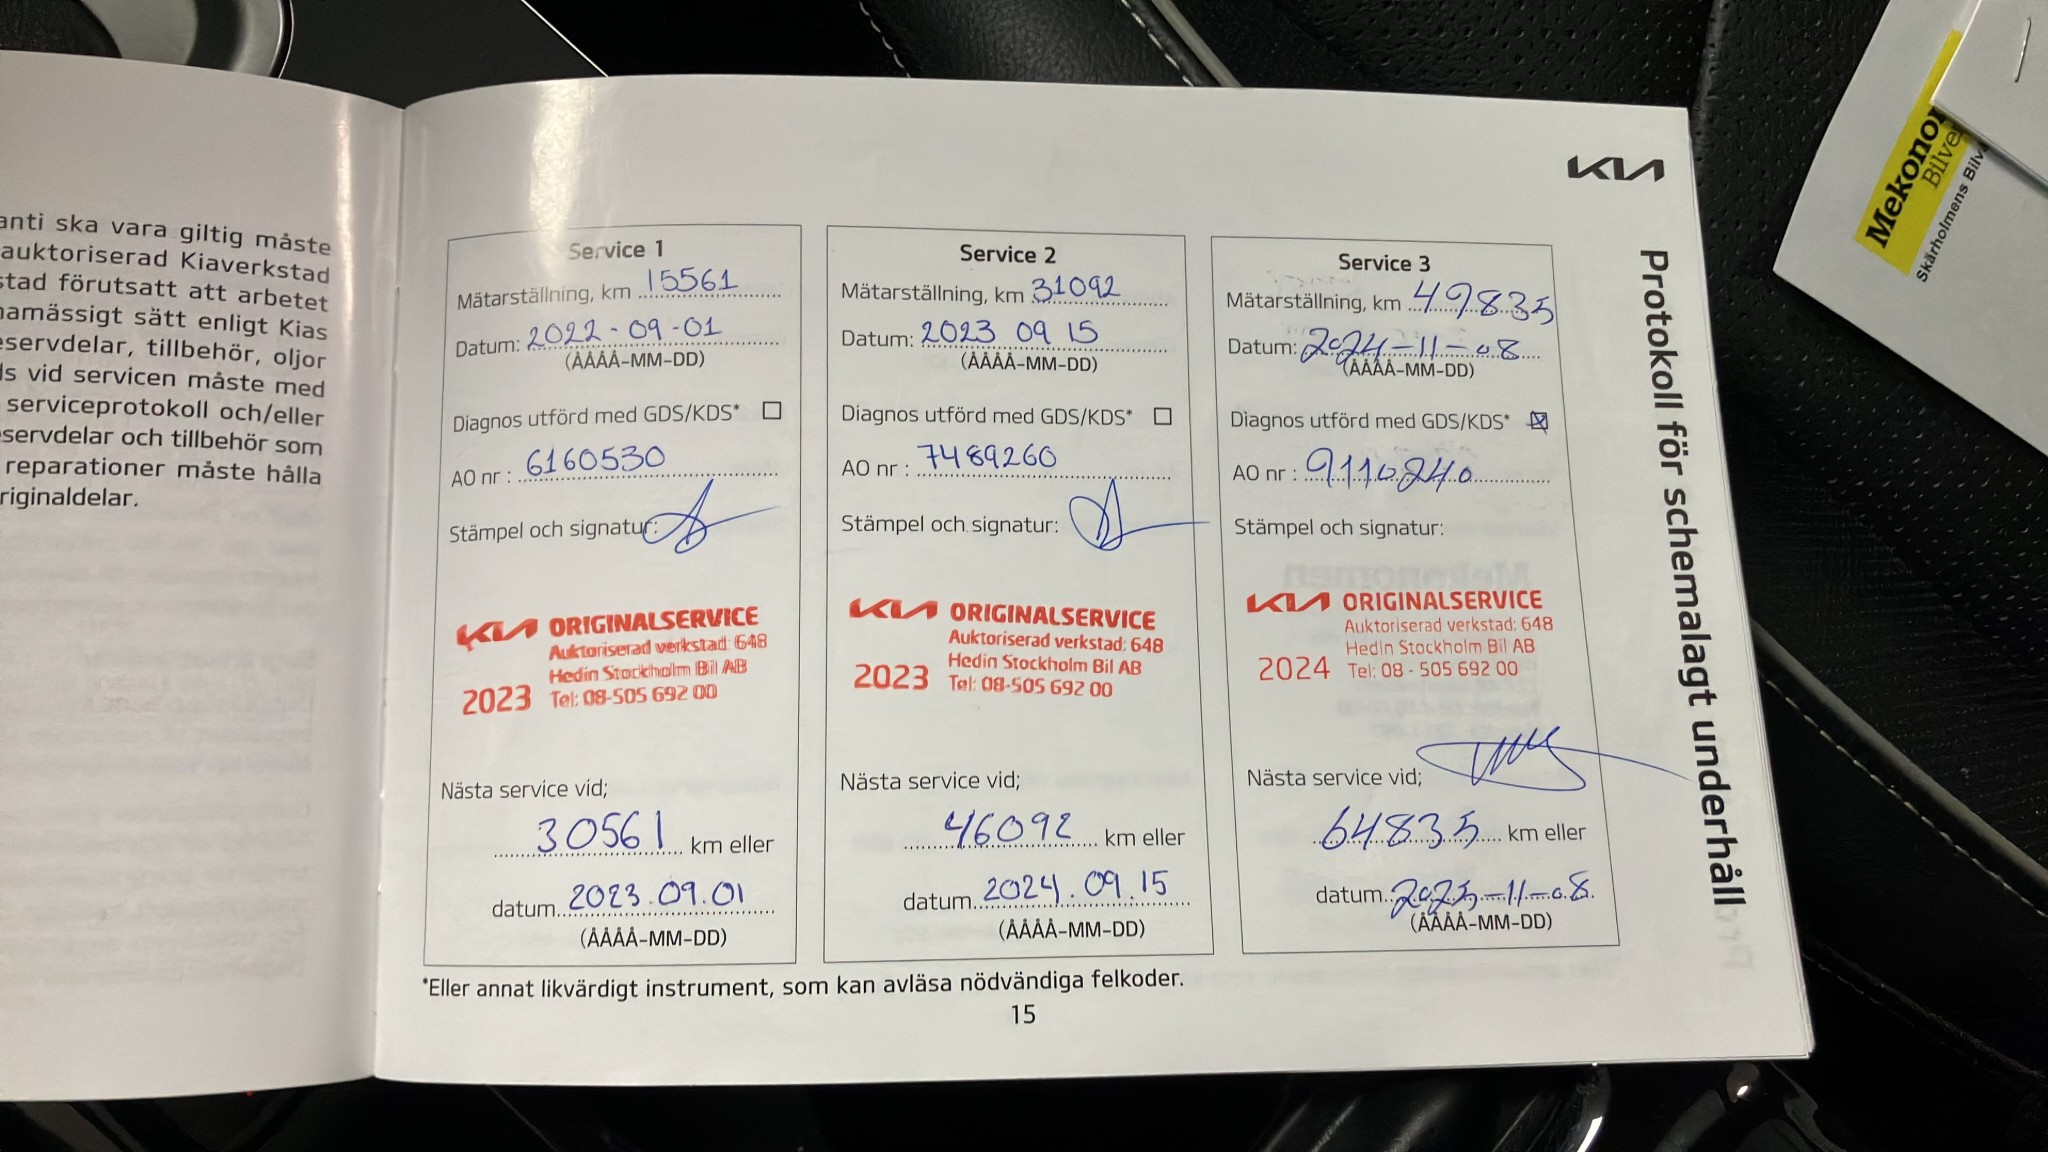 anti ska vara giltig måste
auktoriserad Kiaverkstad
stad förutsatt att arbetet
namässigt sätt enligt Kias
eservdelar, tillbehör, oljor
ds vid servicen måste med
serviceprotokoll och/eller
eservdelar och tillbehör som
reparationer måste hålla
riginaldelar.
KIA
Protokoll för schemalagt underhåll
Service 1
Mätarställning, km 15561
Datum: 2022-09-01
(ÅÅÅÅ-MM-DD)
Diagnos utförd med GDS/KDS*
AO nr : 6160530
Stämpel och signatur:
KIA ORIGINALSERVICE
Auktoriserad verkstad: 648
Hedin Stockholm Bil AB
2023 Tel: 08-505 692 00
Nästa service vid;
30561 km eller
datum 2023.09.01
(ÅÅÅÅ-MM-DD)
Service 2
Mätarställning, km 31092
Datum: 2023 09 15
(ÅÅÅÅ-MM-DD)
Diagnos utförd med GDS/KDS*
AO nr : 7489260
Stämpel och signatur:
KIA ORIGINALSERVICE
Auktoriserad verkstad: 648
Hedin Stockholm Bil AB
2023 Tel: 08-505 692 00
Nästa service vid;
46092 km eller
datum 2024.09.15
(ÅÅÅÅ-MM-DD)
Service 3
Mätarställning, km 49835
Datum: 2024-11-08
(ÅÅÅÅ-MM-DD)
Diagnos utförd med GDS/KDS*
AO nr : 9110240
Stämpel och signatur:
KIA ORIGINALSERVICE
Auktoriserad verkstad: 648
Hedin Stockholm Bil AB
2024 Tel: 08 - 505 692 00
Nästa service vid;
64835 km eller
datum 2025-11-08
(ÅÅÅÅ-MM-DD)
*Eller annat likvärdigt instrument, som kan avläsa nödvändiga felkoder.
15
Mekonom
Bilve
Skärholmens Bilv